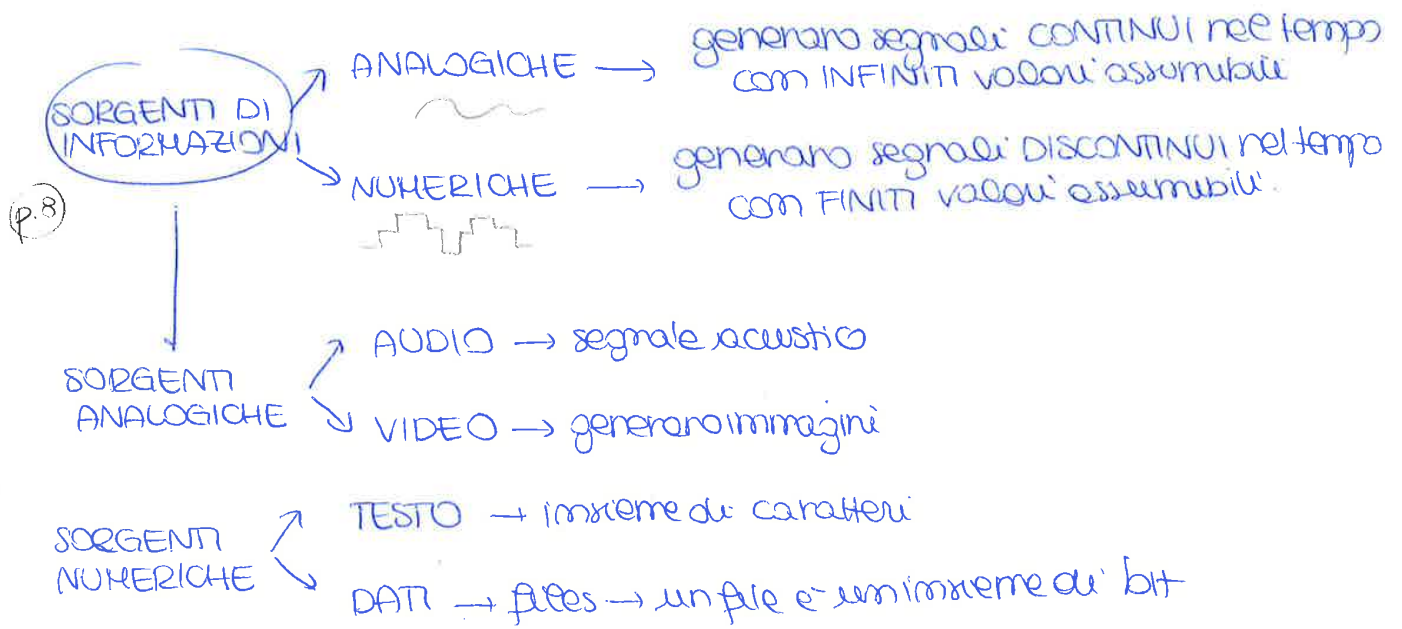 SORGENTI DI
INFORMAZIONI
(p.8)
ANALOGICHE → generano segnali CONTINUI nel tempo
con INFINITI valori assumibili
NUMERICHE → generano segnali DISCONTINUI nel tempo
con FINITI valori assumibili.
SORGENTI
ANALOGICHE
AUDIO → segnale acustico
VIDEO → generano immagini
SORGENTI
NUMERICHE
TESTO → insieme di caratteri
DATI → files → un file è un insieme di bit